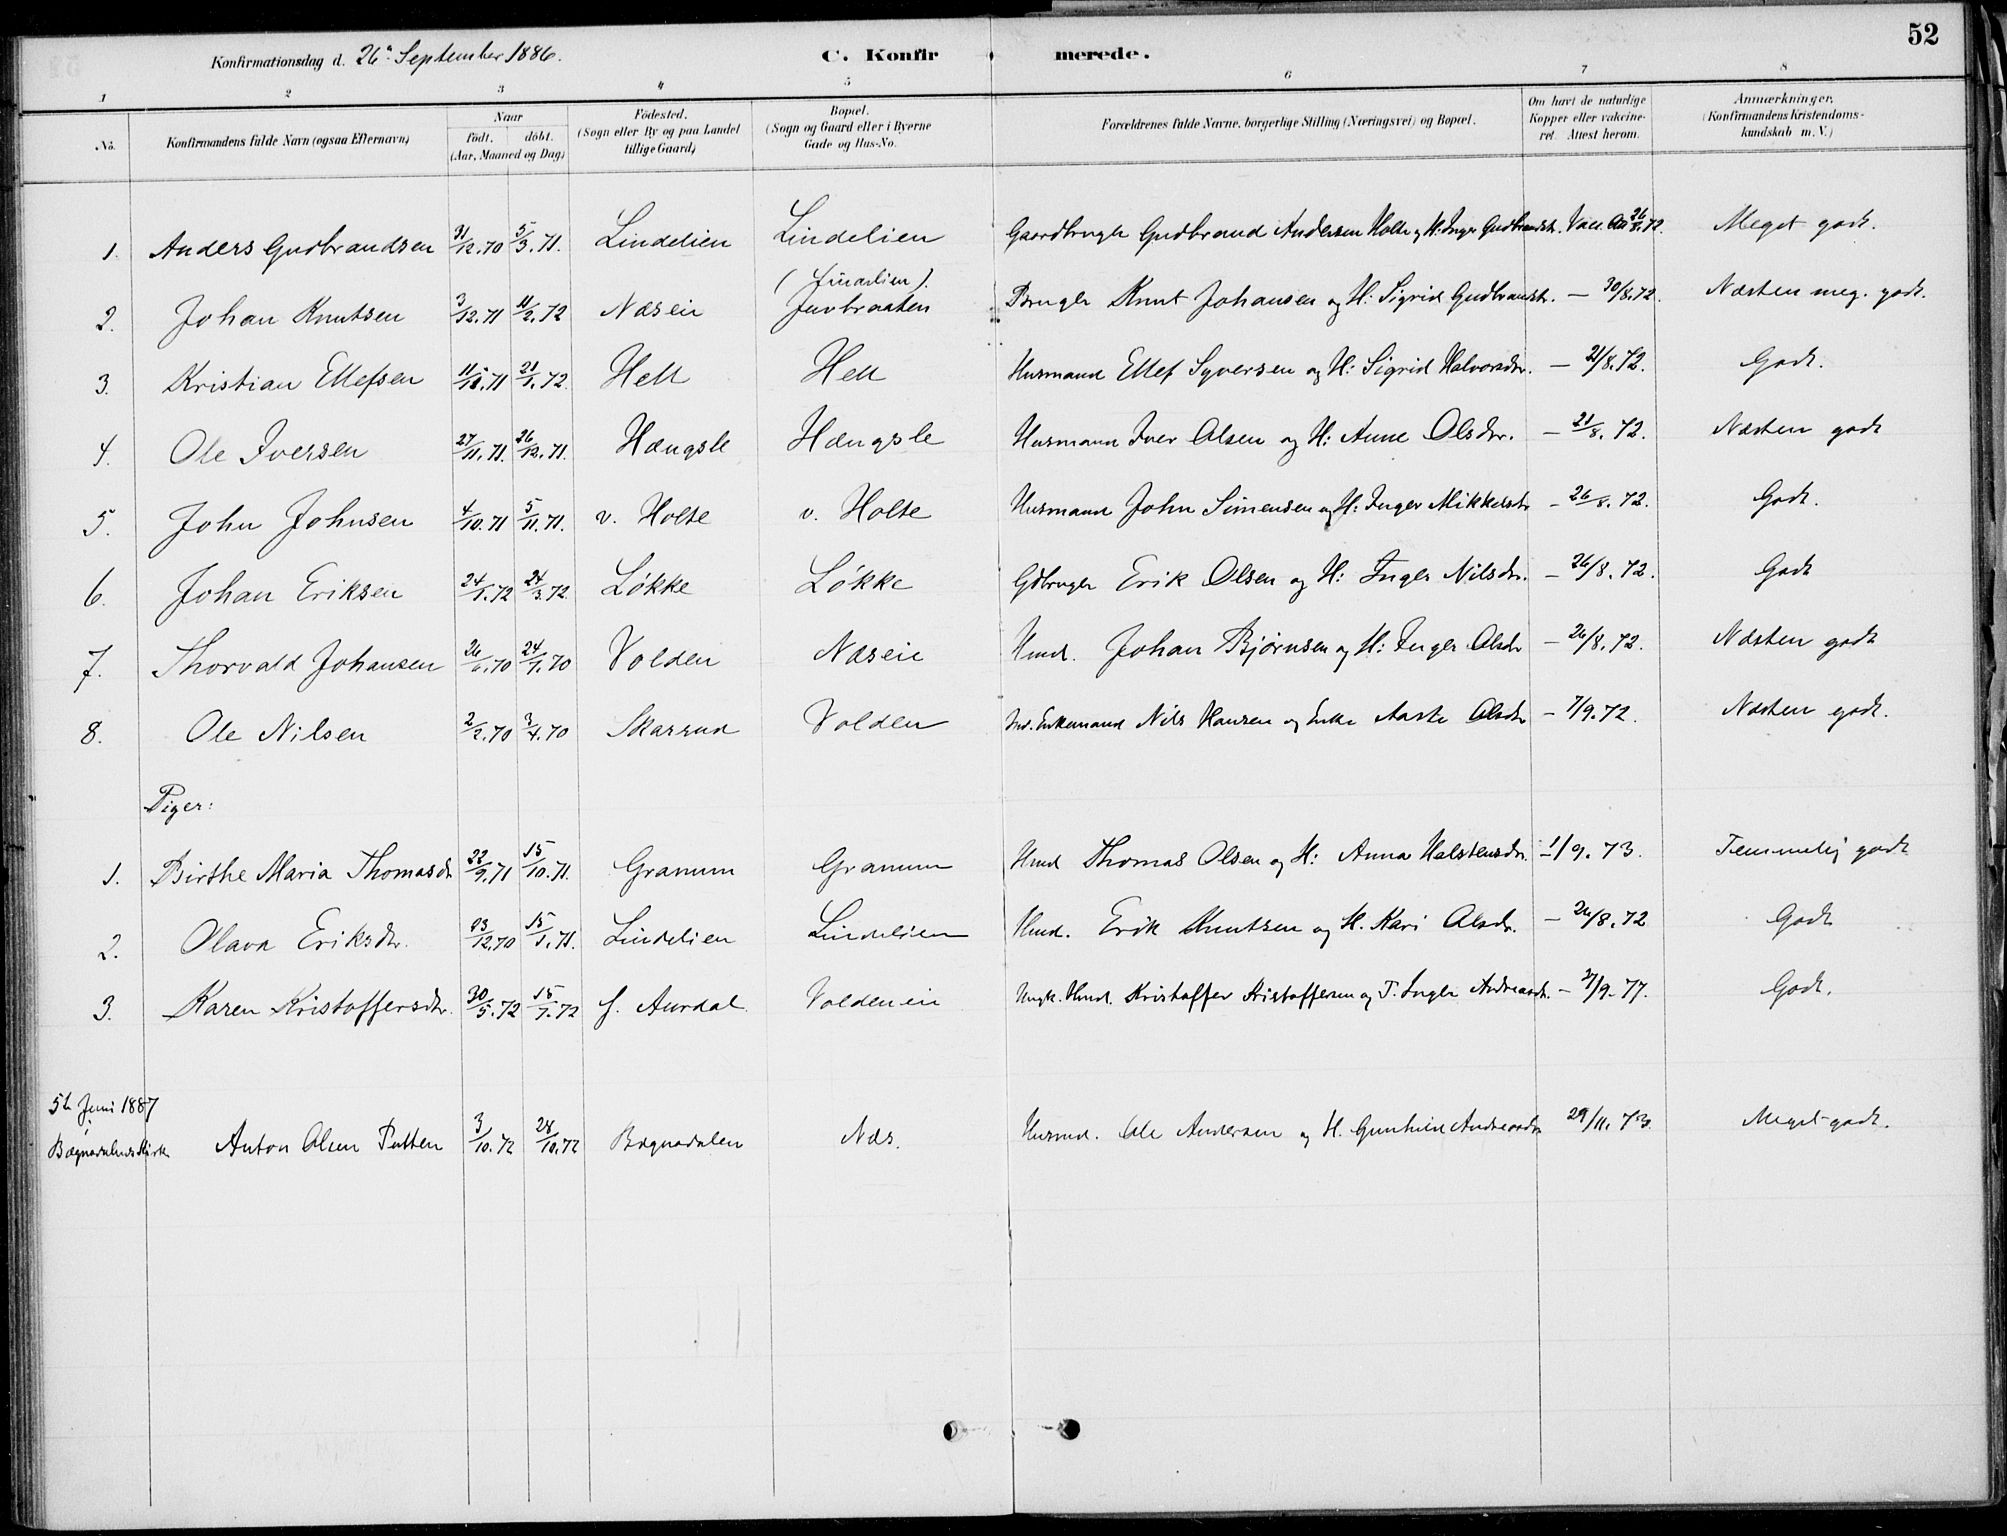 52
Konfirmationsdag d. 26de September 1886. C. Konfirmerede.
1 2 3 4 5 6 7 8
No. Konfirmandens fulde Navn (ogsaa Efternavn) Naar født. døbt. (Aar, Maaned og Dag) Fødested. (Sogn eller By og paa Landet tillige Gaard) Bopæl. (Sogn og Gaard eller i Byerne Gade og Hus-No. Forældrenes fulde Navne, borgerlige Stilling (Næringsvei) og Bopæl. Om havt de naturlige Kopper eller vakcineret. Attest herom. Anmærkninger, (Konfirmandens Kristendomskundskab m. V.)
1. Anders Gudbrandsen 31/12.70 5/3.71. Lindelien Lindelien Gaardbruger Gudbrand Andersen Holte og H: Inger Gudbrandsdr. Vacc. Att 26/8.72. Meget godt.
(Juvelien).
2. Johan Knutsen 3/12.71 11/2.72 Næseie Juvbraaten Bruger Knut Johansen og H: Sigrid Gudbrandsdr. — 30/8.72. Næsten meg. godt.
3. Kristian Ellefsen 11/10.71 21/1.72. Hell Hell Husmand Ellef Syversen og H: Sigrid Halvorsdr. — 21/8.72. Godt.
4. Ole Iversen 27/11.71. 26/12.71. Hængsle Hængsle Husmann Iver Olsen og H: Anne Olsdr. — 21/8.72. Næsten godt
5. John Johnsen 4/10.71 5/11.71. v. Holte v. Holte Husmand John Simensen og H: Inger Mikkelsdr — 26/8.72. Godt.
6. Johan Eriksen 24/1.72 24/3.72. Løkke Løkke Gdbruger Erik Olsen og H: Inger Nilsdr. — 26/8.72. Godt
7. Thorvald Johansen 26/6.70 24/7.70 Volden Næseie Hmd. Johan Bjørnsen og H: Inger Olsdr — 26/8.72. Næsten godt
8. Ole Nilsen 2/2.70 3/4.70 Skarrud Volden Ind. Enkemand Nils Hansen og Enke Aaste Olsdr — 7/9.72. Næsten godt.
Piger:
1. Birthe Maria Thomasdr 22/9.71 15/10.71. Granum Granum Hmd Thomas Olsen og H: Anna Halstensdr. — 1/9.73. Temmelig godt
2. Olava Eriksdr. 23/12.70 15/1.71. Lindelien Lindelien Hmd. Erik Knutsen og H. Kari Olsdr. — 26/8.72 Godt
3. Karen Kristoffersdr. 30/5.72 15/7.72 S. Aurdal Voldeneie Ungk. Hmd. Kristoffer Kristoffersen og P. Inger Andreasdr. — 27/9.77. Godt.
5te Juni 1887
Bægnadalens Kirke Anton Olsen Putten 3/10.72 28/10.72 Bægnadalen Næs. Husmd. Ole Andersen og H. Gunhild Andreasdr 29/11.73. Meget godt.